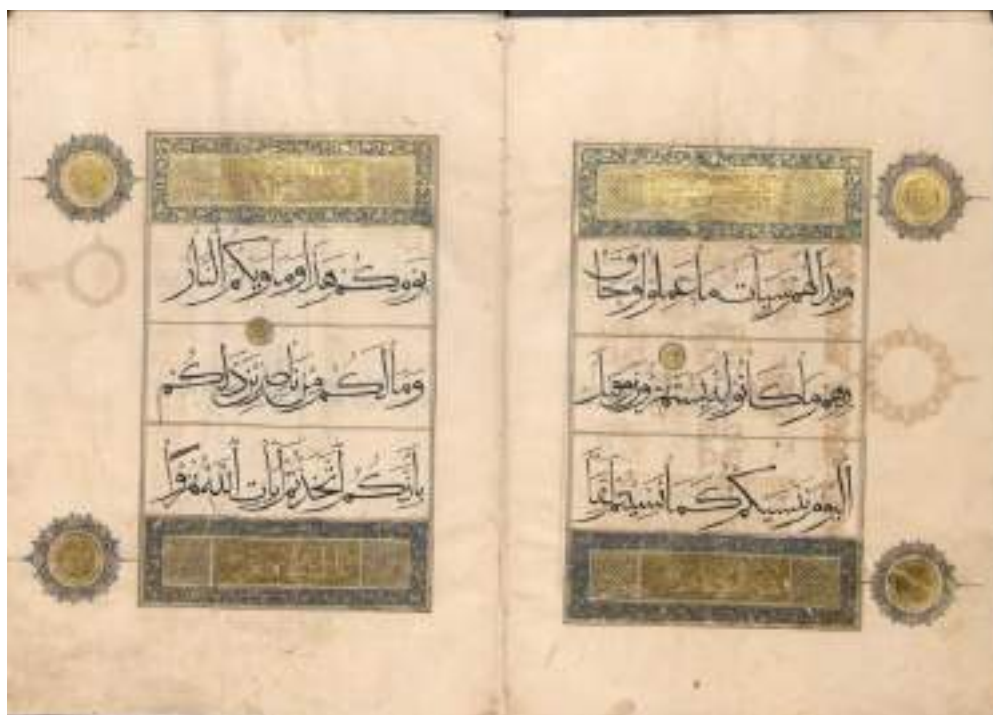 وبدا لهم سيات ما عملوا وحاق
بهم ما كانوا به يستهزون وقيل
اليوم ننسيكم كما نسيتم لقا
يومكم هذا وماويكم النار
وما لكم من ناصرين ذلكم
بأنكم اتخذتم ايات الله هزوا